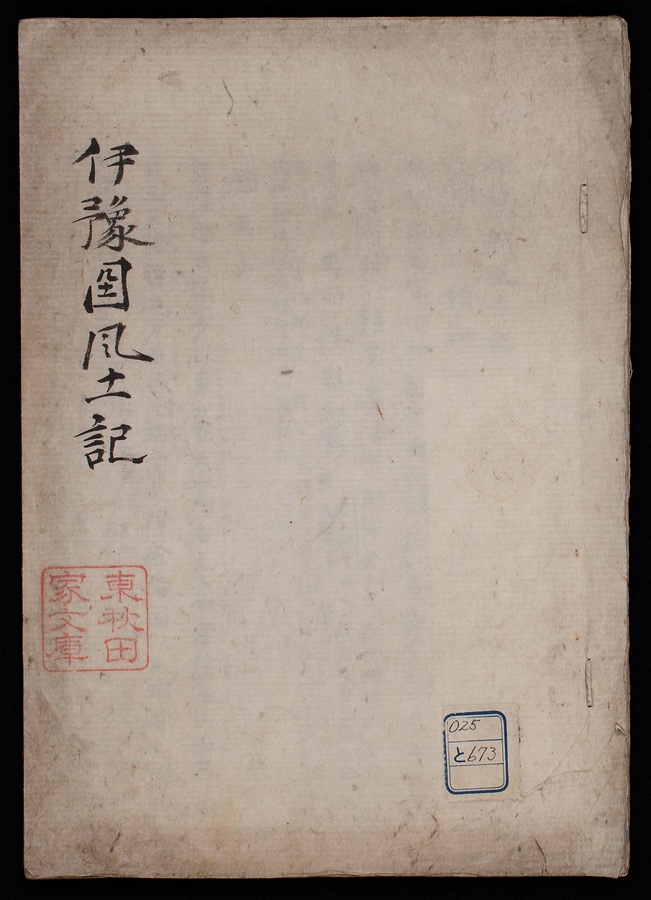 伊豫国風土記
東秋田
家文庫
025
と673